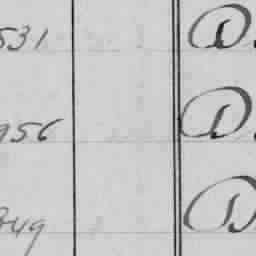 531 D.
956 D.
349 D